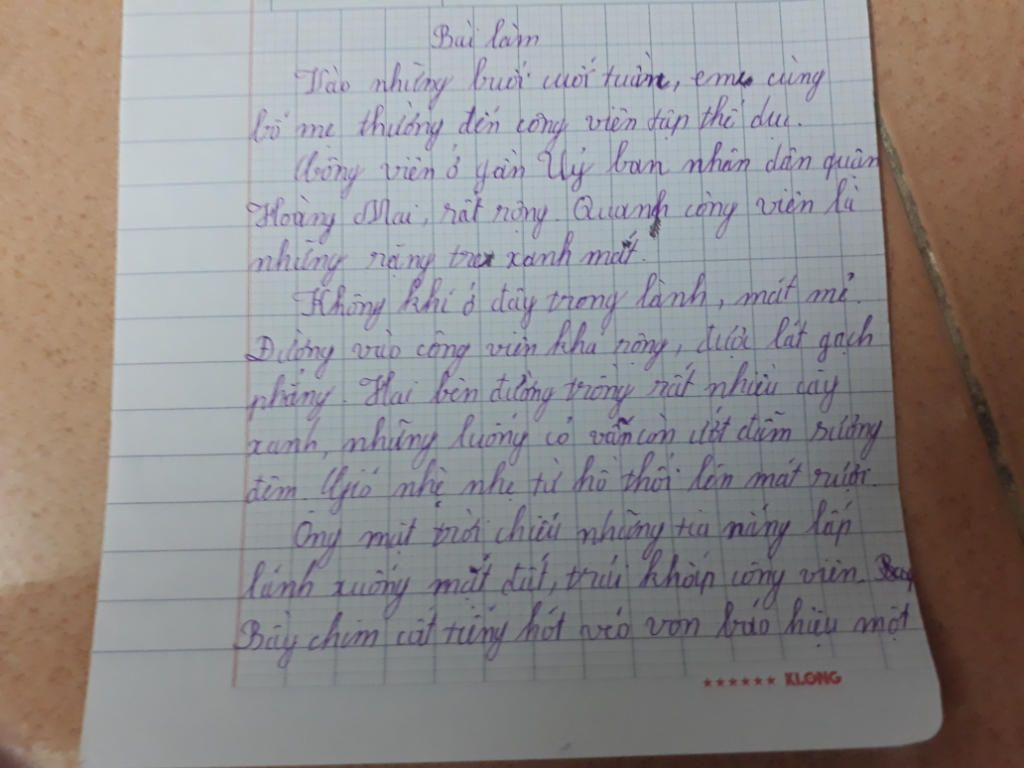 Bài làm
Vào những buổi cuối tuần, em cùng
bố mẹ thường đến công viên tập thể dục.
Công viên ở gần Uỷ ban nhân dân quận
Hoàng Mai, rất rộng. Quanh công viên là
những rặng tre xanh mát.
Không khí ở đây trong lành, mát mẻ.
Đường vào công viên khá rộng, được lát gạch
phẳng. Hai bên đường trồng rất nhiều cây
xanh, những luống cỏ vẫn còn ướt đẫm sương
đêm. Gió nhè nhẹ từ hồ thổi lên mát rượi.
Ông mặt trời chiếu những tia nắng lấp
lánh xuống mặt đất, trải khắp công viên.
Bầy chim cất tiếng hót véo von báo hiệu một
****** KLONG